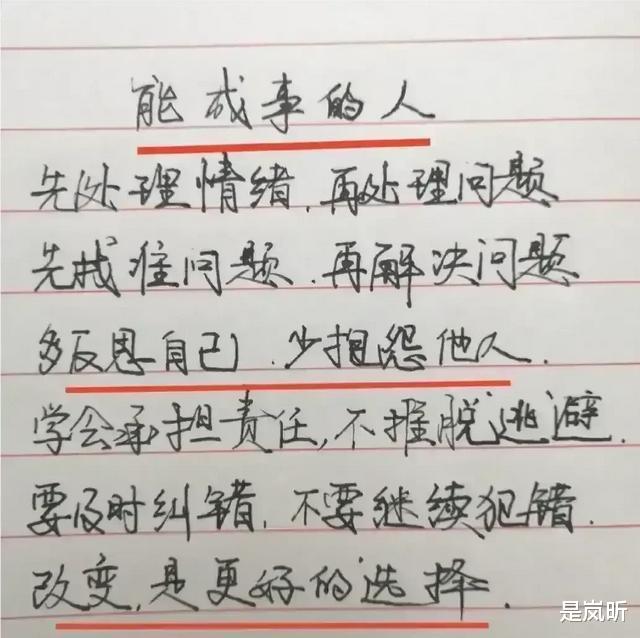 能成事的人
先处理情绪,再处理问题
先找准问题,再解决问题
多反思自己,少抱怨他人.
学会承担责任,不推脱逃避.
要及时纠错,不要继续犯错.
改变,是更好的选择.
是岚昕